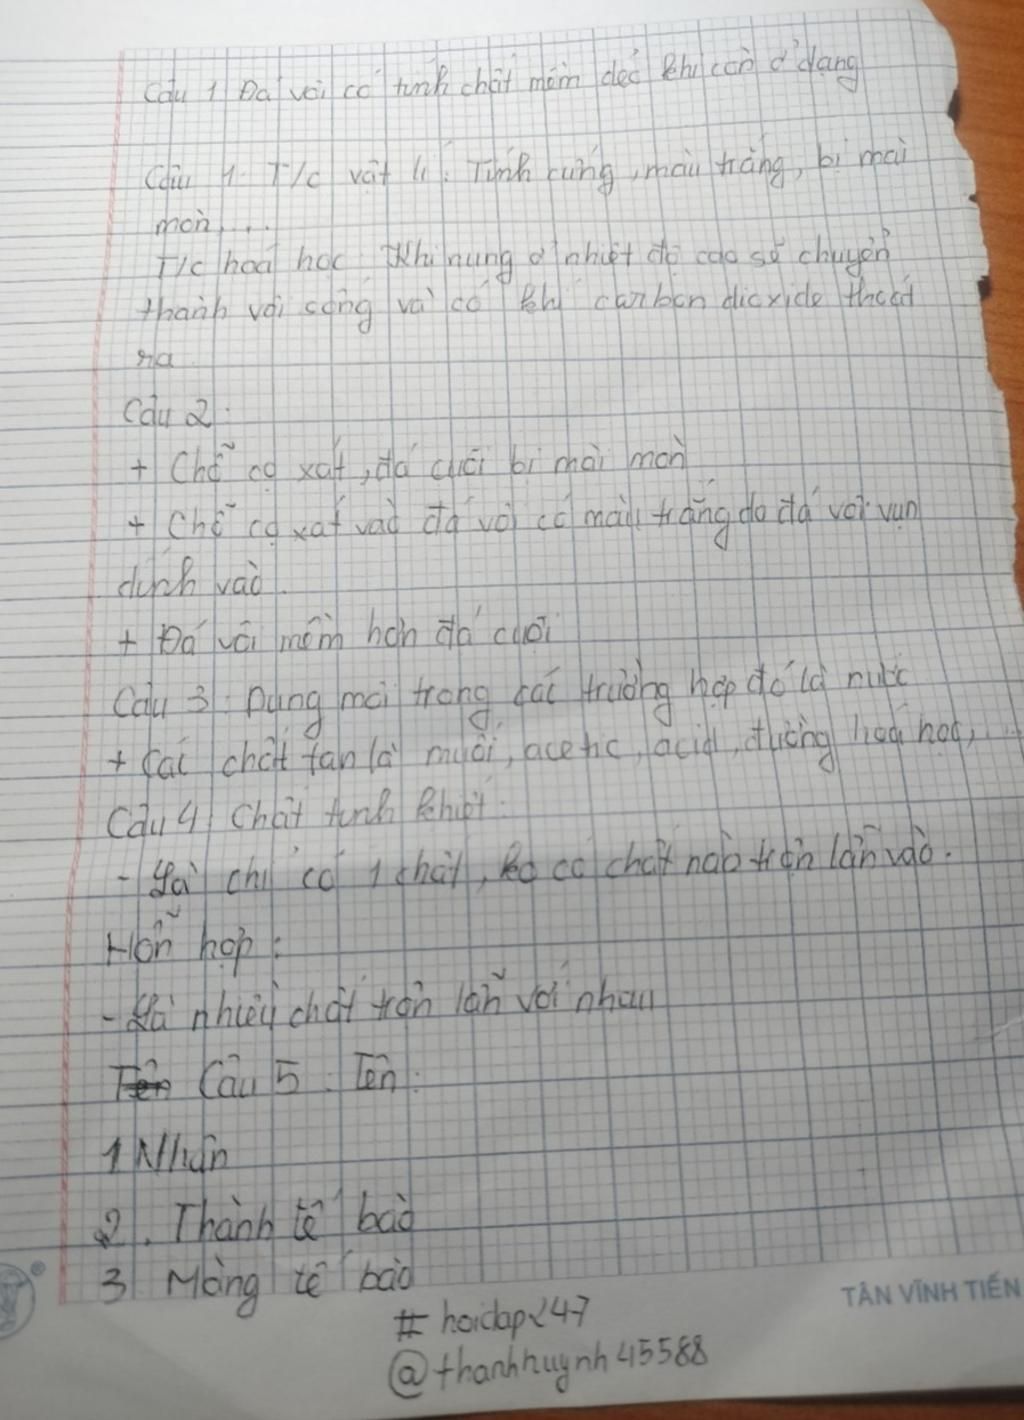 Câu 1 Đá vôi có tính chất mềm dẻo khi còn ở dạng
Câu 1. T/c vật lí: Tính cứng, màu trắng, bị mài
mòn,...
T/c hoá học Khi nung ở nhiệt độ cao sẽ chuyển
thành vôi sống và có khí carbon dioxide thoát
ra.
Câu 2:
+ Chỗ cọ xát, đá cuội bị mài mòn
+ Chỗ cọ xát vào đá vôi có màu trắng do đá vôi vụn
dính vào.
+ Đá vôi mềm hơn đá cuội
Câu 3: Dung môi trong các trường hợp đó là nước
+ Các chất tan là muối, acetic, acid, đường hoá học,...
Câu 4: Chất tinh khiết:
- Là chỉ có 1 chất, ko có chất nào trộn lẫn vào.
Hỗn hợp:
- Là nhiều chất trộn lẫn với nhau
Tên Câu 5: Tên:
1 Nhân
2. Thành tế bào
3 Màng tế bào
TÂN VĨNH TIẾN
# hoidap247
@thanhhuynh45588